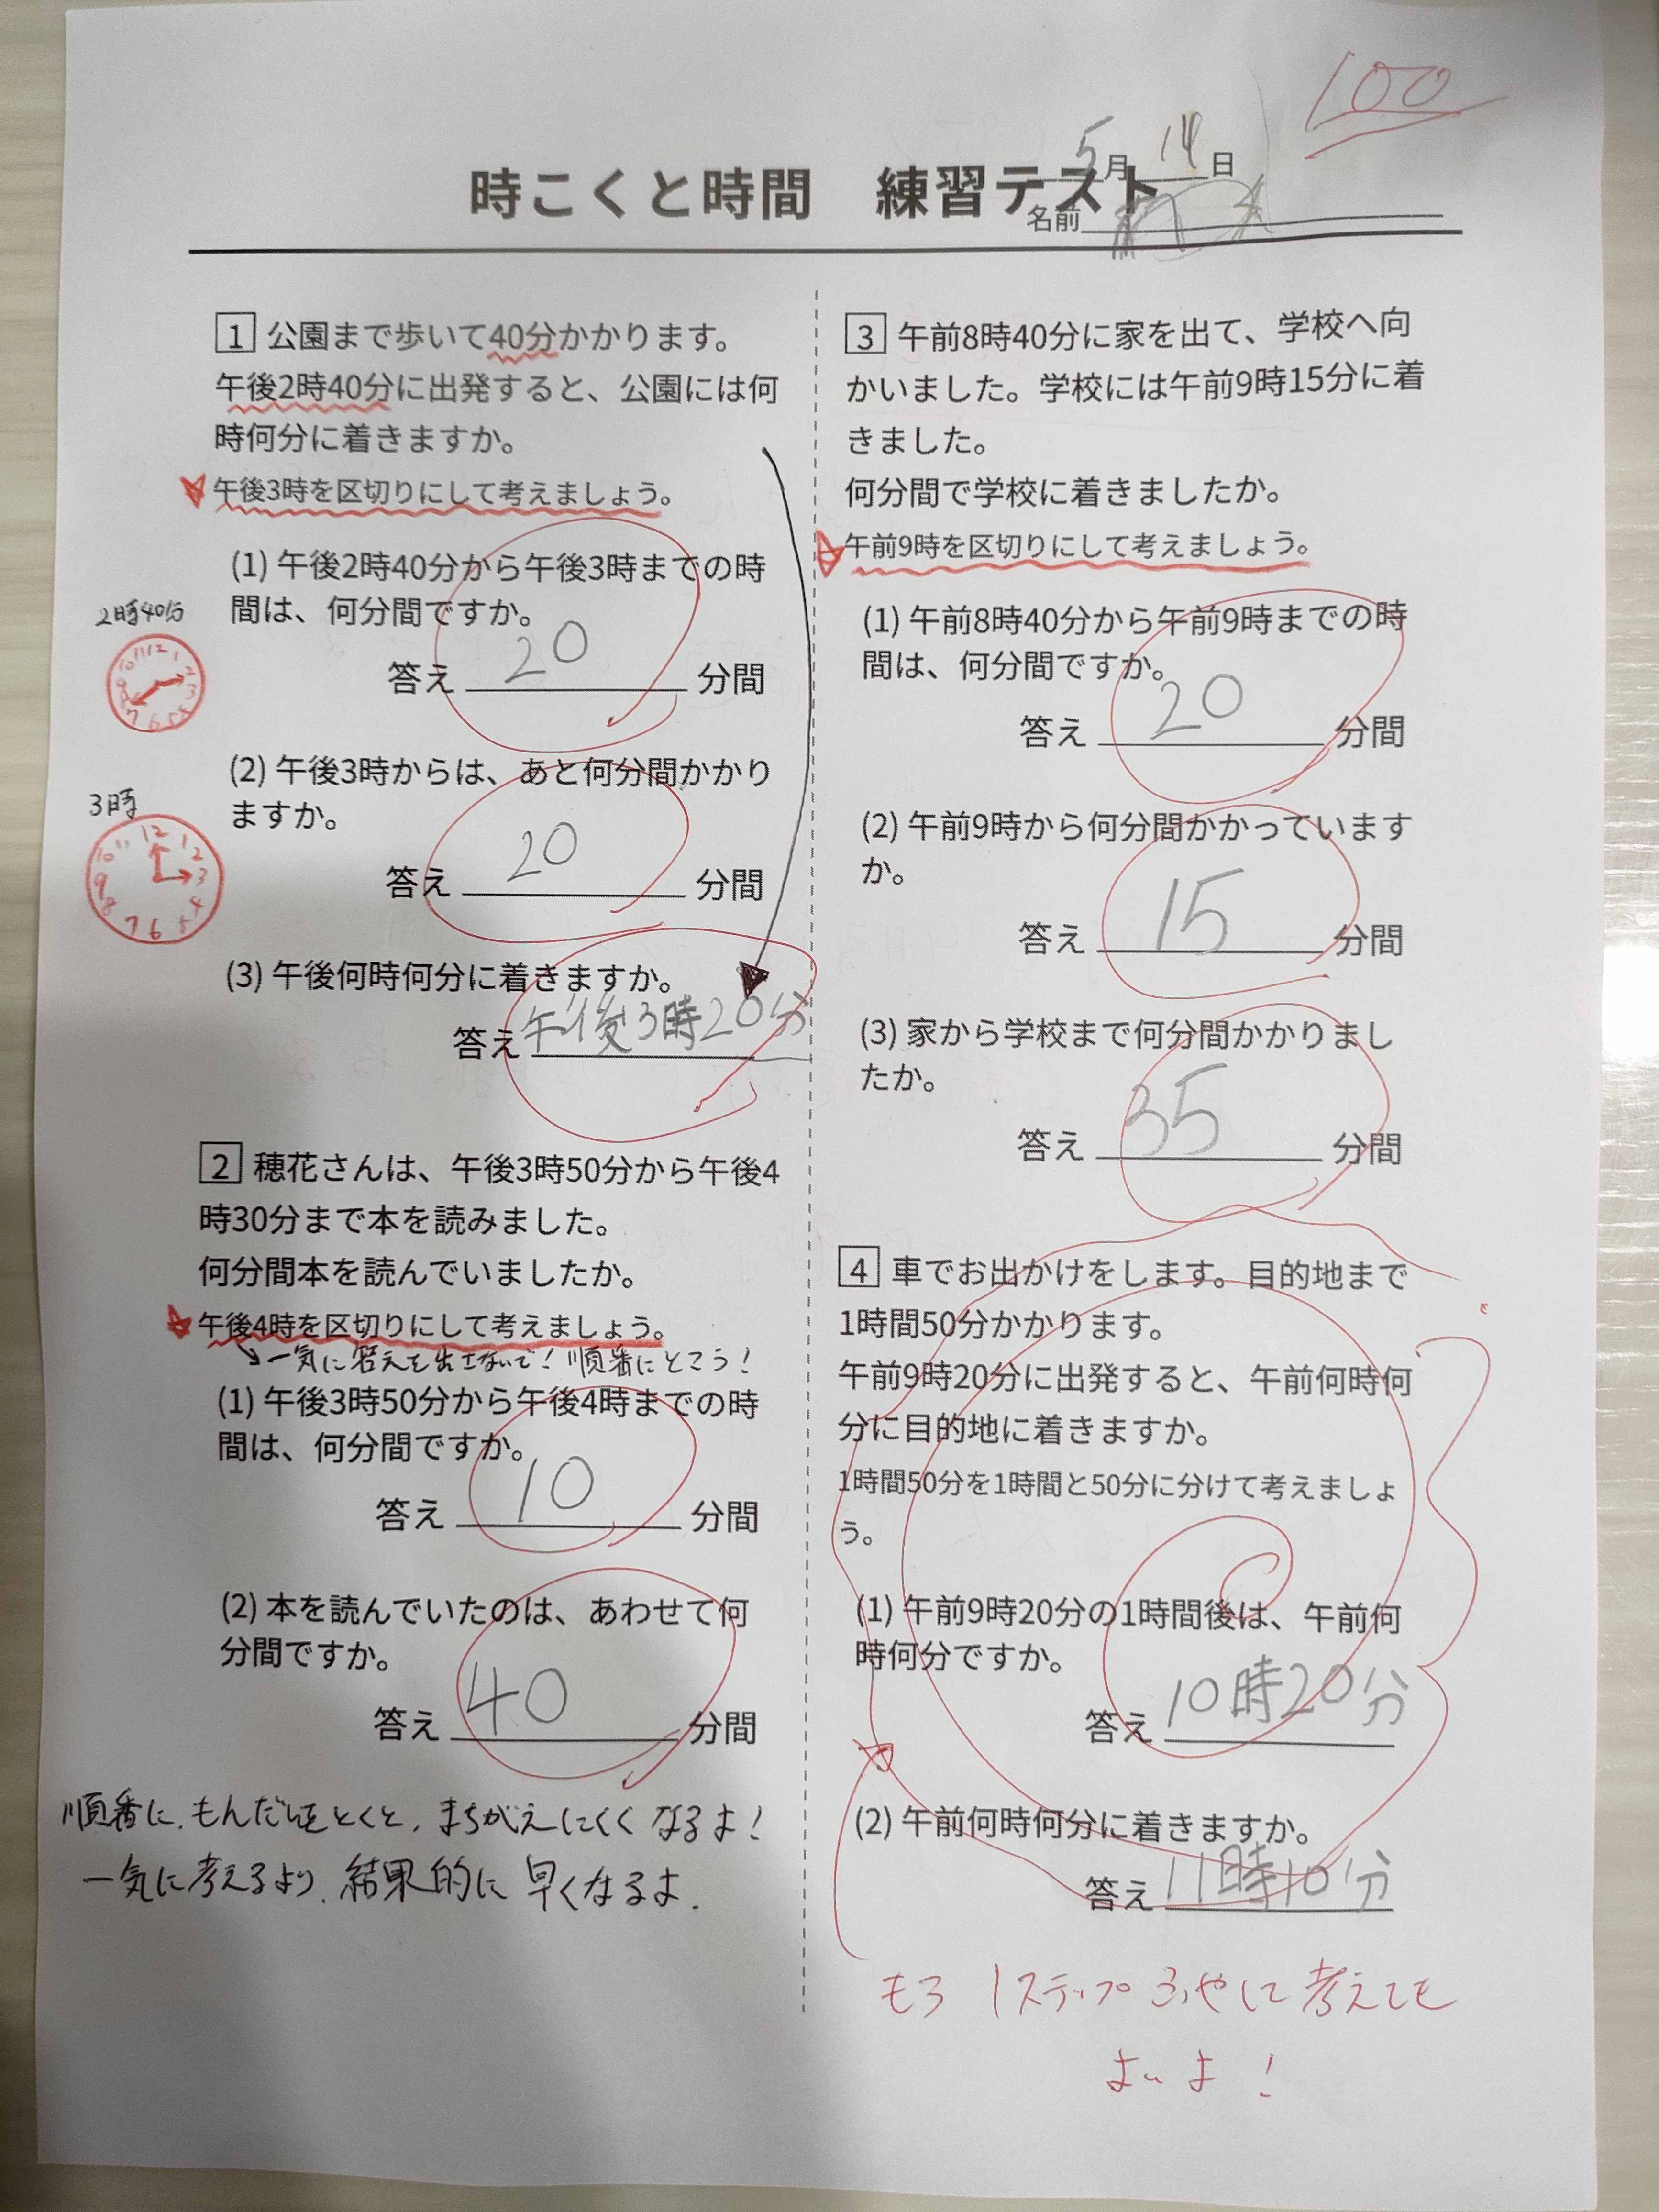 100
5月14日
時こくと時間 練習テスト
名前
1 公園まで歩いて40分かかります。
午後2時40分に出発すると、公園には何
時何分に着きますか。
午後3時を区切りにして考えましょう。
(1) 午後2時40分から午後3時までの時
間は、何分間ですか。
答え 20 分間
2時40分
12 1 2 3 4 5 6 7 8 9 10 11
(2) 午後3時からは、あと何分間かかり
ますか。
答え 20 分間
3時
12 1 2 3 4 5 6 7 8 9 10 11
(3) 午後何時何分に着きますか。
答え 午後3時20分
2 穂花さんは、午後3時50分から午後4
時30分まで本を読みました。
何分間本を読んでいましたか。
午後4時を区切りにして考えましょう。
一気に答えを出さないで!順番にとこう!
(1) 午後3時50分から午後4時までの時
間は、何分間ですか。
答え 10 分間
(2) 本を読んでいたのは、あわせて何
分間ですか。
答え 40 分間
順番に、もんだいをとくと、まちがえにくくなるよ!
一気に考えるより、結果的に早くなるよ.
3 午前8時40分に家を出て、学校へ向
かいました。学校には午前9時15分に着
きました。
何分間で学校に着きましたか。
午前9時を区切りにして考えましょう。
(1) 午前8時40分から午前9時までの時
間は、何分間ですか。
答え 20 分間
(2) 午前9時から何分間かかっています
か。
答え 15 分間
(3) 家から学校まで何分間かかりまし
たか。
答え 35 分間
4 車でお出かけをします。目的地まで
1時間50分かかります。
午前9時20分に出発すると、午前何時何
分に目的地に着きますか。
1時間50分を1時間と50分に分けて考えましょ
う。
(1) 午前9時20分の1時間後は、午前何
時何分ですか。
答え 10時20分
(2) 午前何時何分に着きますか。
答え 11時10分
もう1ステップふやして考えても
よいよ!